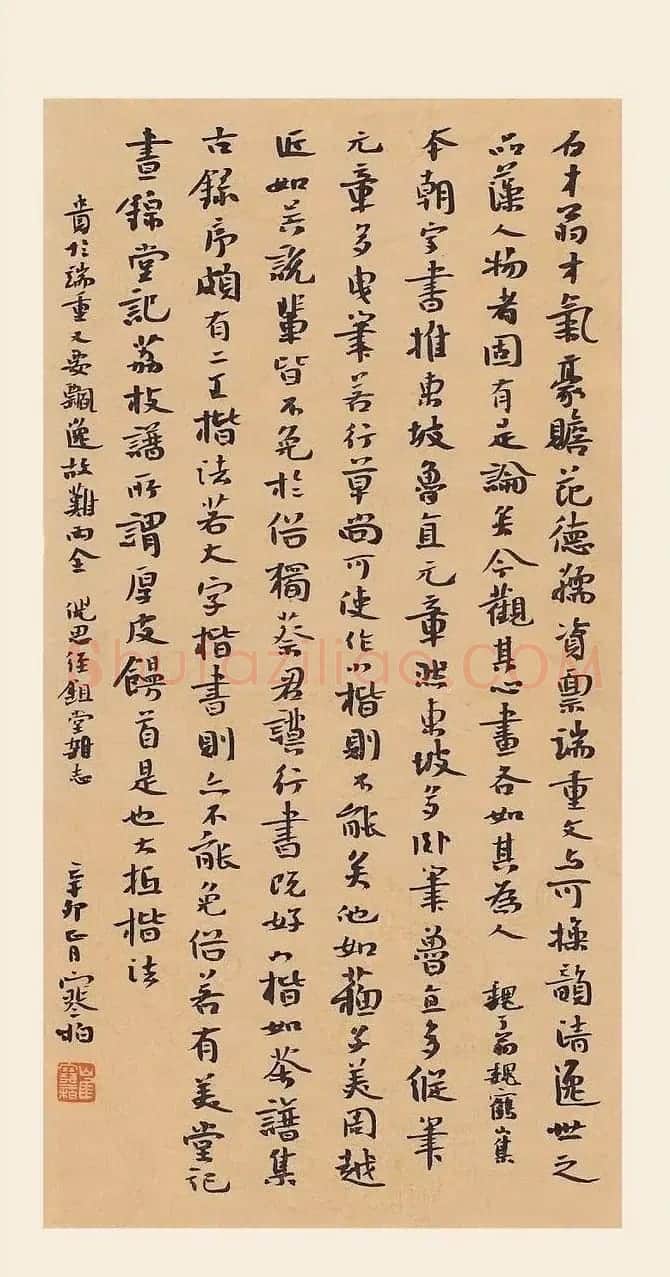 石才翁才氣豪贍范德孺資禀端重文與可操韻清逸世之
品藻人物者固有是論矣今觀其心畫各如其為人 魏了翁魏鶴山集
本朝字書推東坡魯直元章然東坡多卧筆魯直多縱筆
元章多曳筆若行草尚可使作小楷則不能矣他如蘇子美周越
近如吳說輩皆不免於俗獨蔡君謨行書既好小楷如茶譜集
古錄序頗有二王楷法若大字楷書則亦不能免俗若有美堂記
晝錦堂記荔枝譜所謂厚皮饅首是也大抵楷法
貴於端重又要飄逸故難兩全 倪思經鉏堂雜志
辛卯正月 寒柏
ShufaZiliao.COM